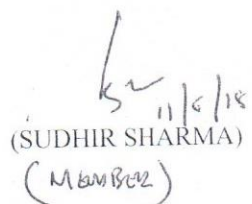 11/6/18
(SUDHIR SHARMA)
(MEMBER)